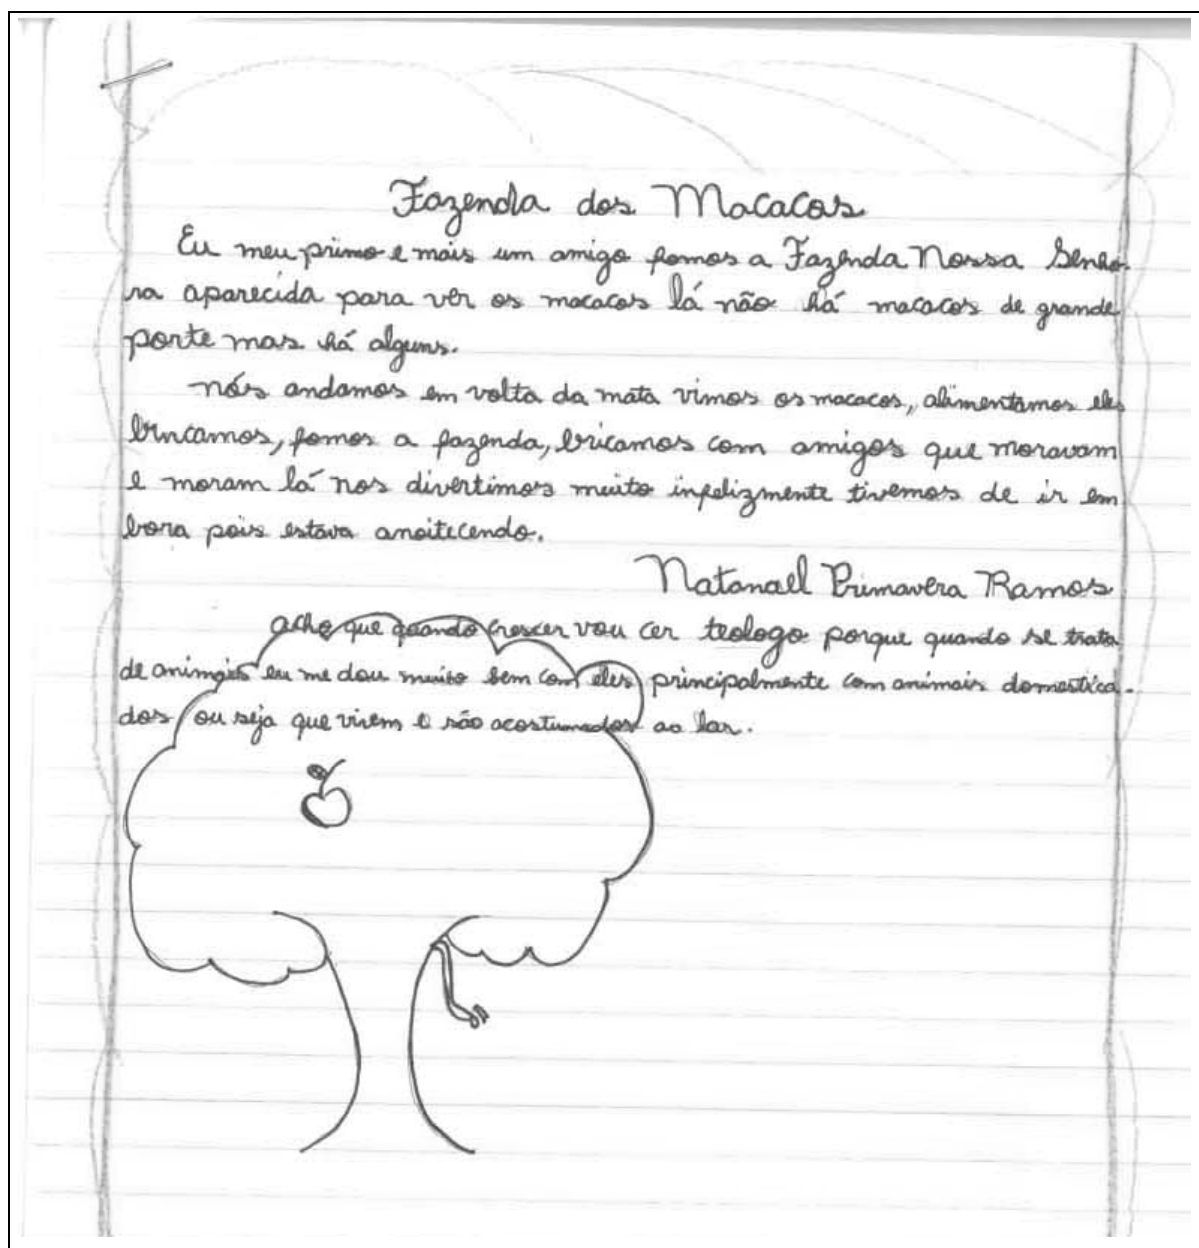 Fazenda dos Macacos
Eu meu primo e mais um amigo fomos a Fazenda Nossa Senho
ra aparecida para ver os macacos lá não há macacos de grande
porte mas há alguns.
nós andamos em volta da mata vimos os macacos, alimentamos eles
brincamos, fomos a fazenda, bricamos com amigos que moravam
e moram lá nos divertimos muito infelizmente tivemos de ir em
bora pois estava anoitecendo.
Natanael Primavera Ramos
acho que quando crescer vou cer teologo porque quando se trata
de animais eu me dou muito bem com eles principalmente com animais domestica-
dos ou seja que vivem e são acostumados ao lar.